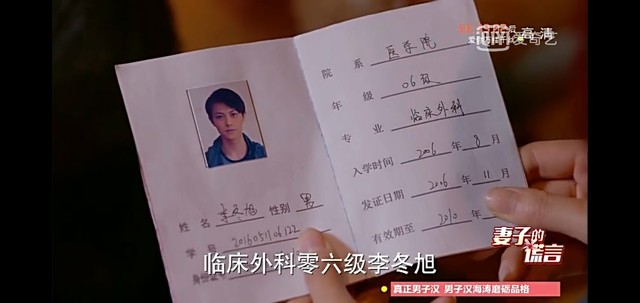 高清
爱奇艺
姓名 李冬旭 性别 男
学号 2016051106122
身份
院系 医学院
年级 06级
专业 临床外科
入学时间 2006 年 8 月
发证日期 2006 年 11 月
有效期至 2010 年
妻子的谎言
临床外科零六级李冬旭
真正男子汉 男子汉海涛磨砺品格